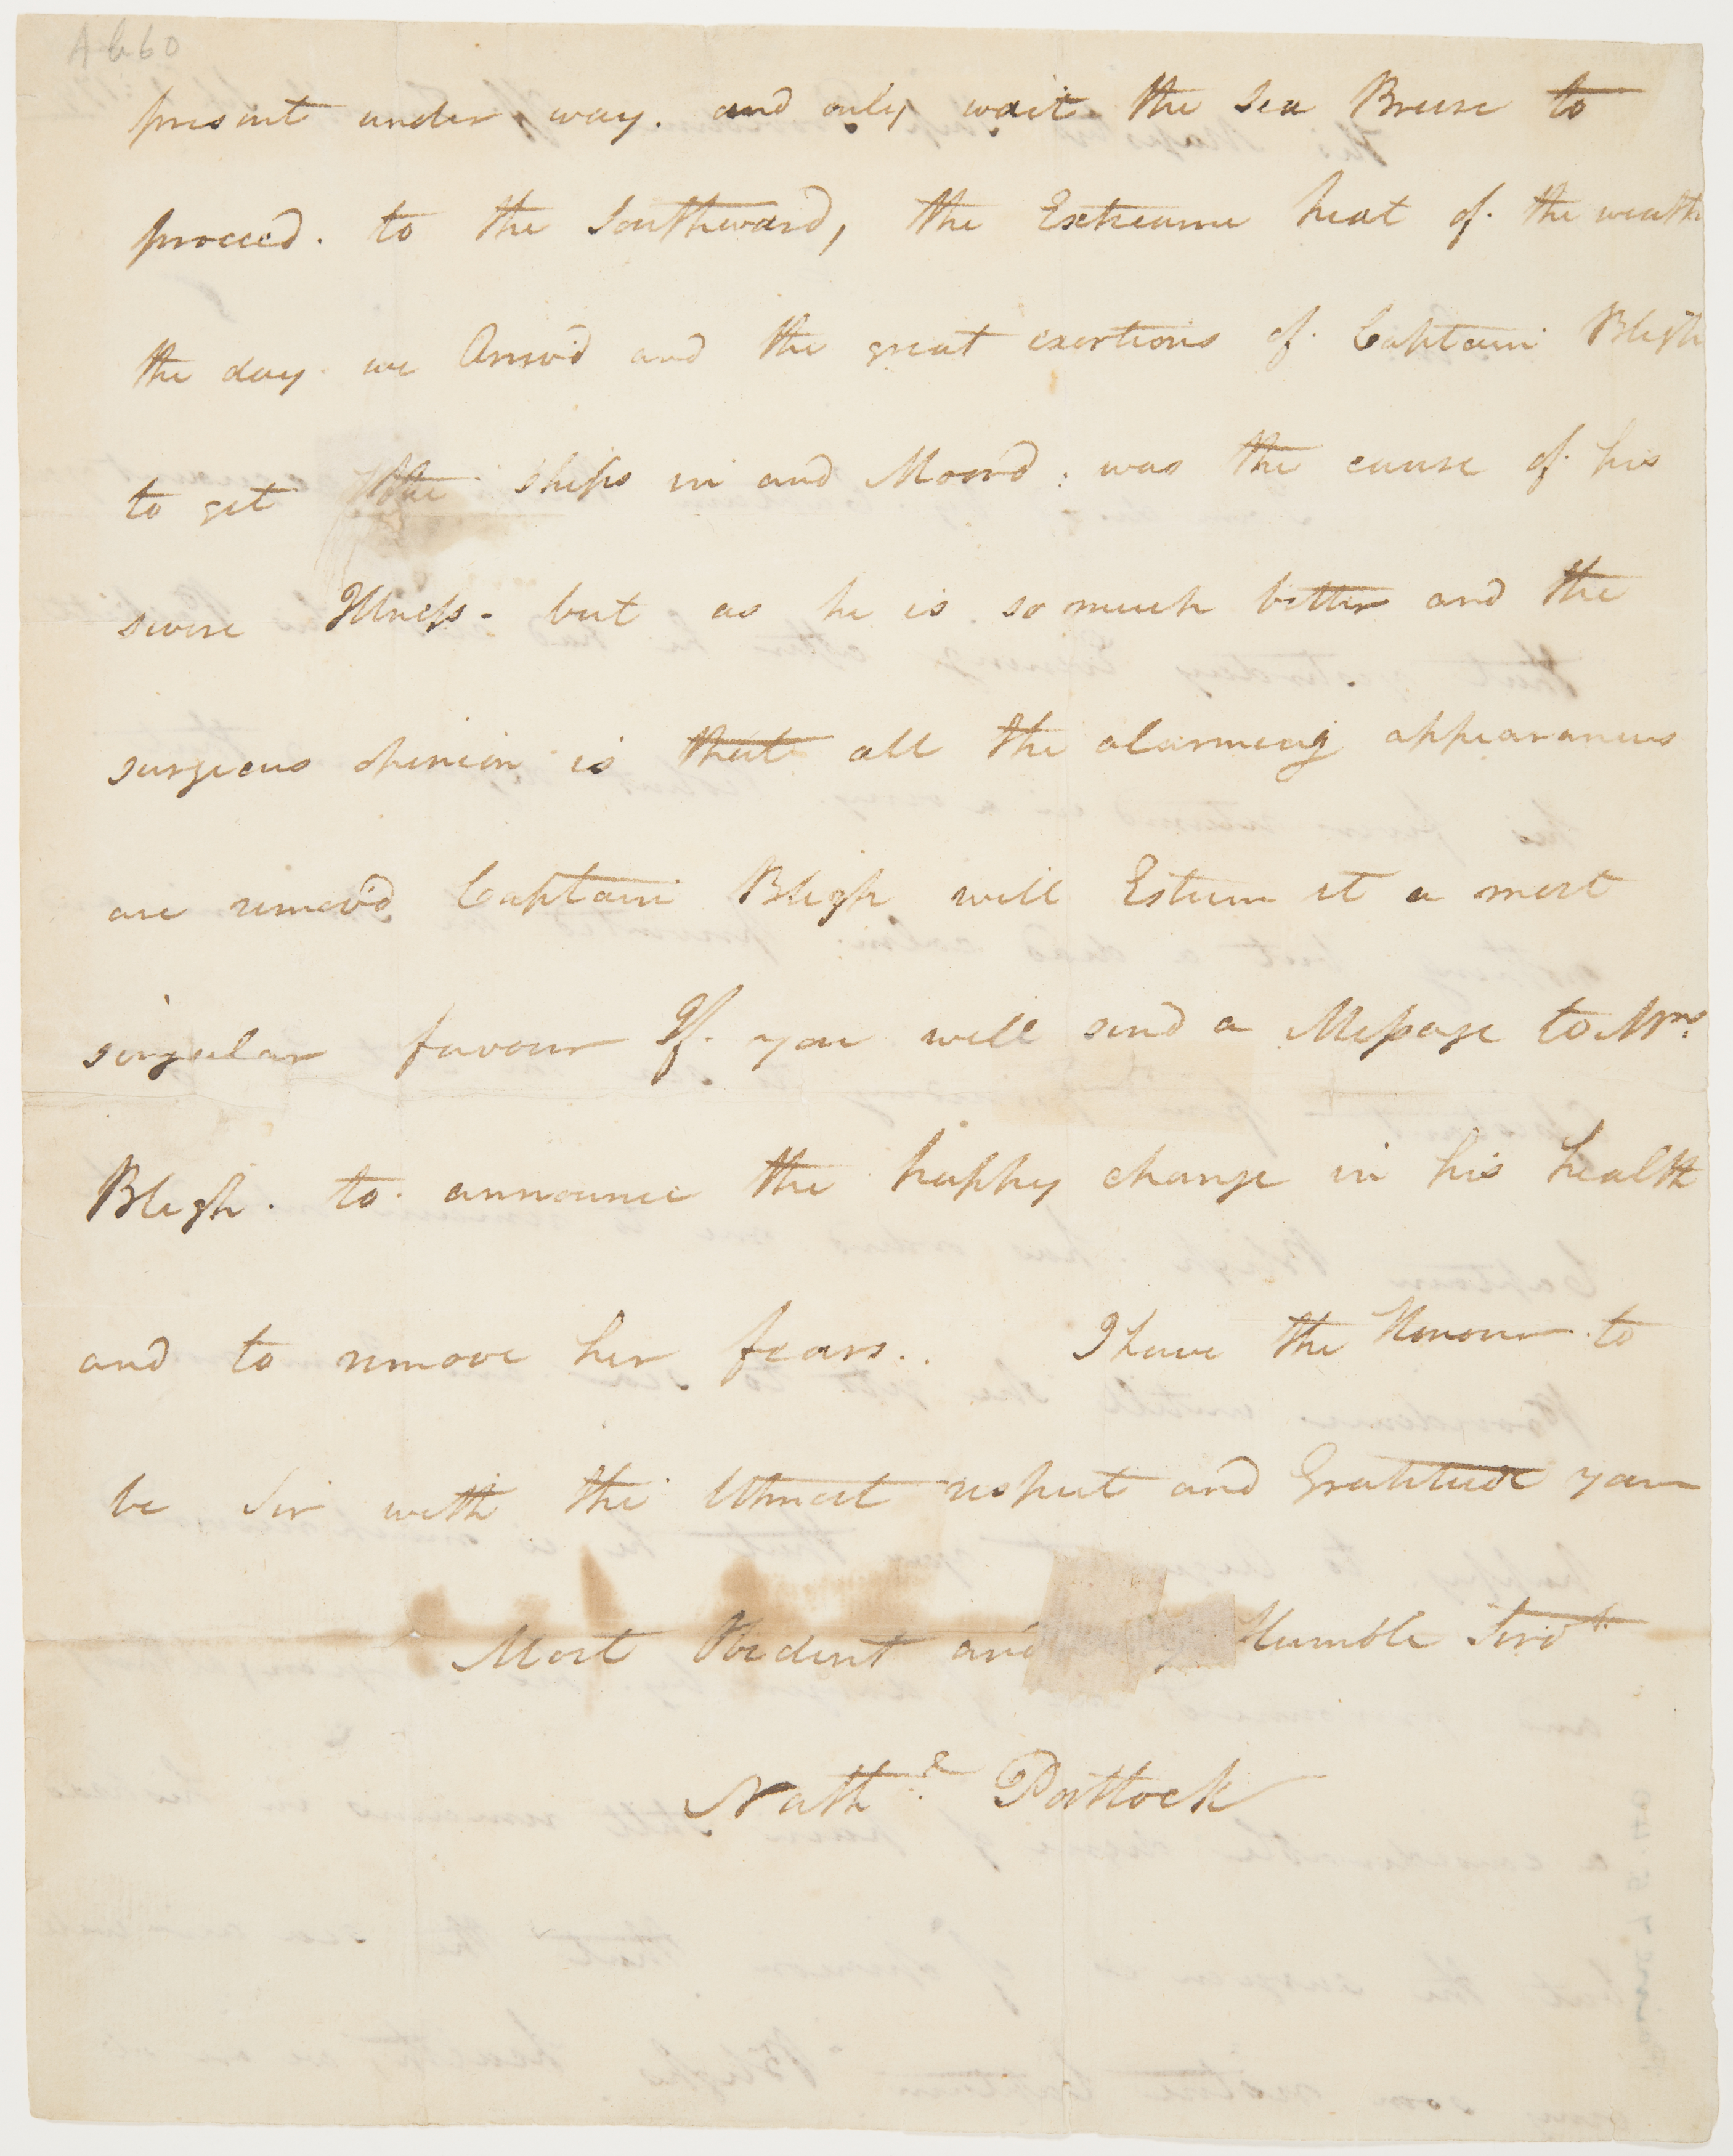 Ab60
present under way. and only wait the Sea Breese to
proceed. to the Southward, the Extreame heat of the weath
the day we Arriv'd and the great exertions of Captain Bligh
to get the ships in and Moor'd; was the cause of his
severe Illness. but as he is so much better and the
surgeons opinion is that all the alarming appearances
are remov'd Captain Bligh will Esteem it a most
singular favour If you will send a Message to Mrs.
Bligh. to announce the happy change in his health
and to remove her fears.. I have the Honour to
be Sir with the Utmost respect and Gratitude your
Most Obedient and Humble Servt.
Nathl. Portlock